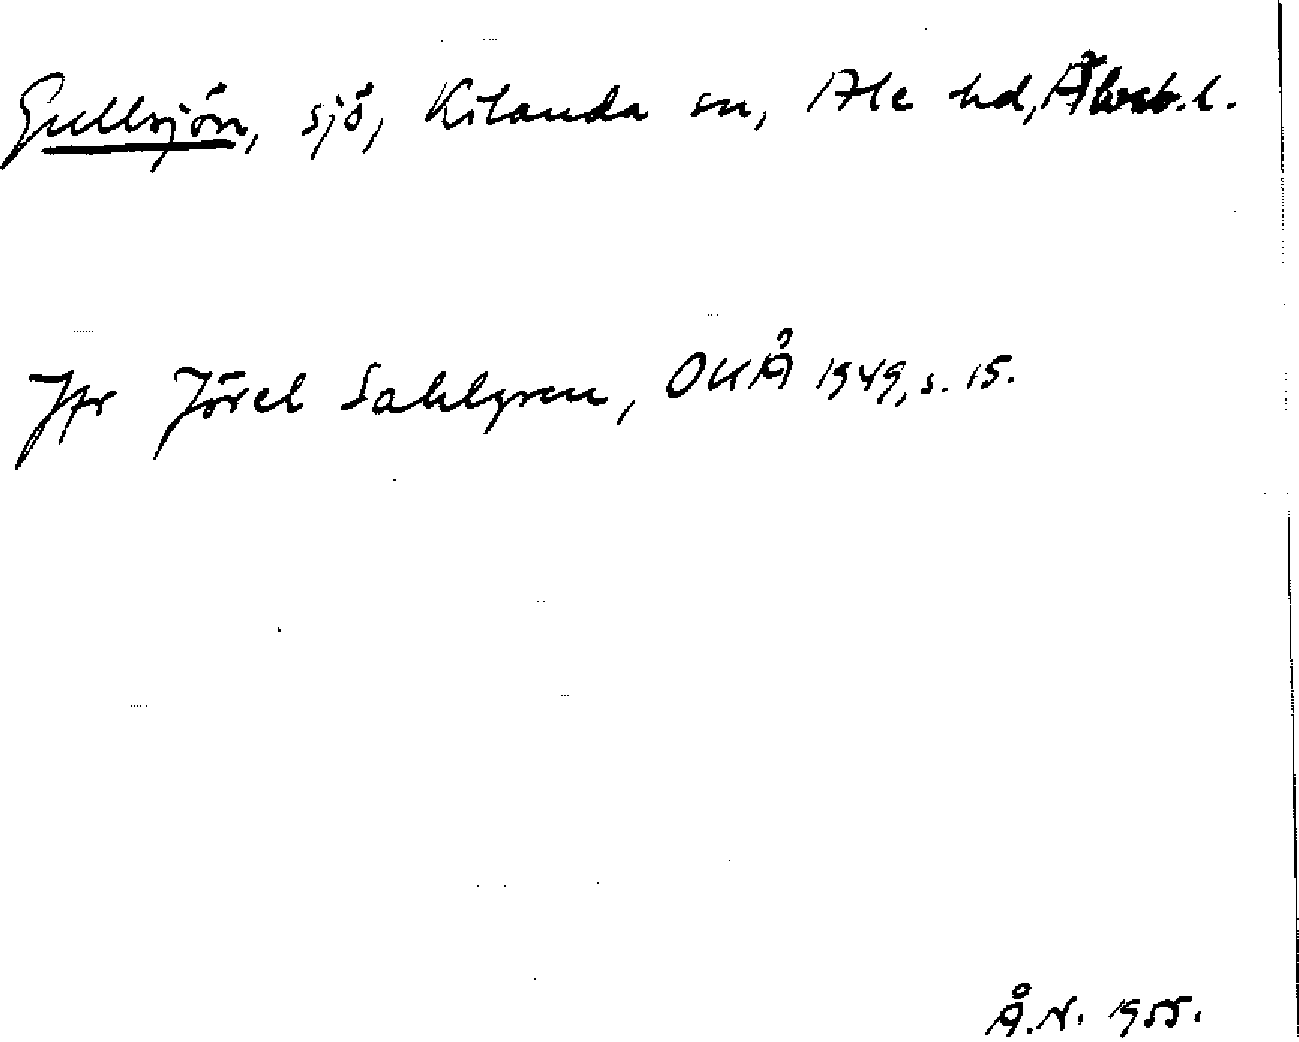 Gullsjön, sjö, Kilanda sn, Ale hd, Älvsb. l.
Jfr Jöran Sahlgren, OUÅ 1949, s. 15.
Å.N. 1955.